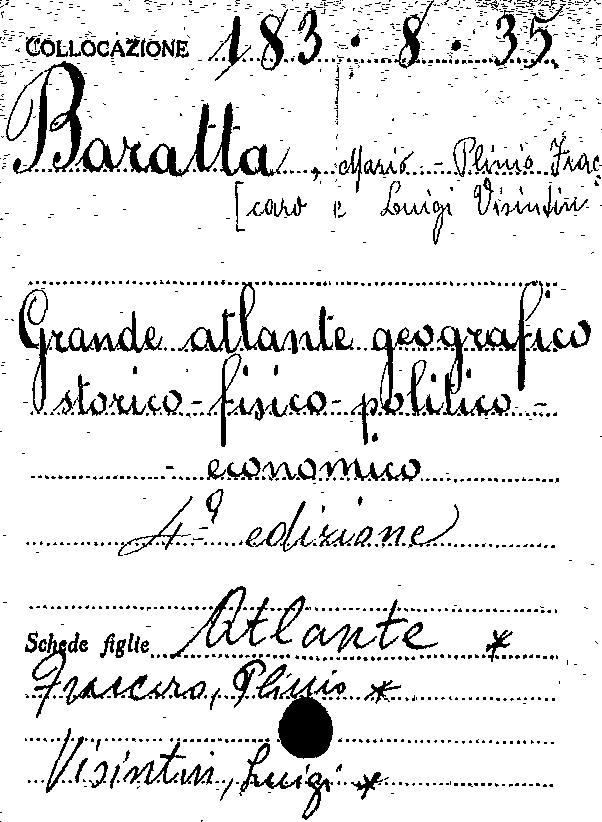 COLLOCAZIONE 183.8.35
Baratta, Mario - Plinio Frac
[caro e Luigi Visintin
Grande atlante geografico
storico-fisico-politico-
- economico
4ª edizione
Schede figlie Atlante *
Fraccaro, Plinio *
Visintin, Luigi *